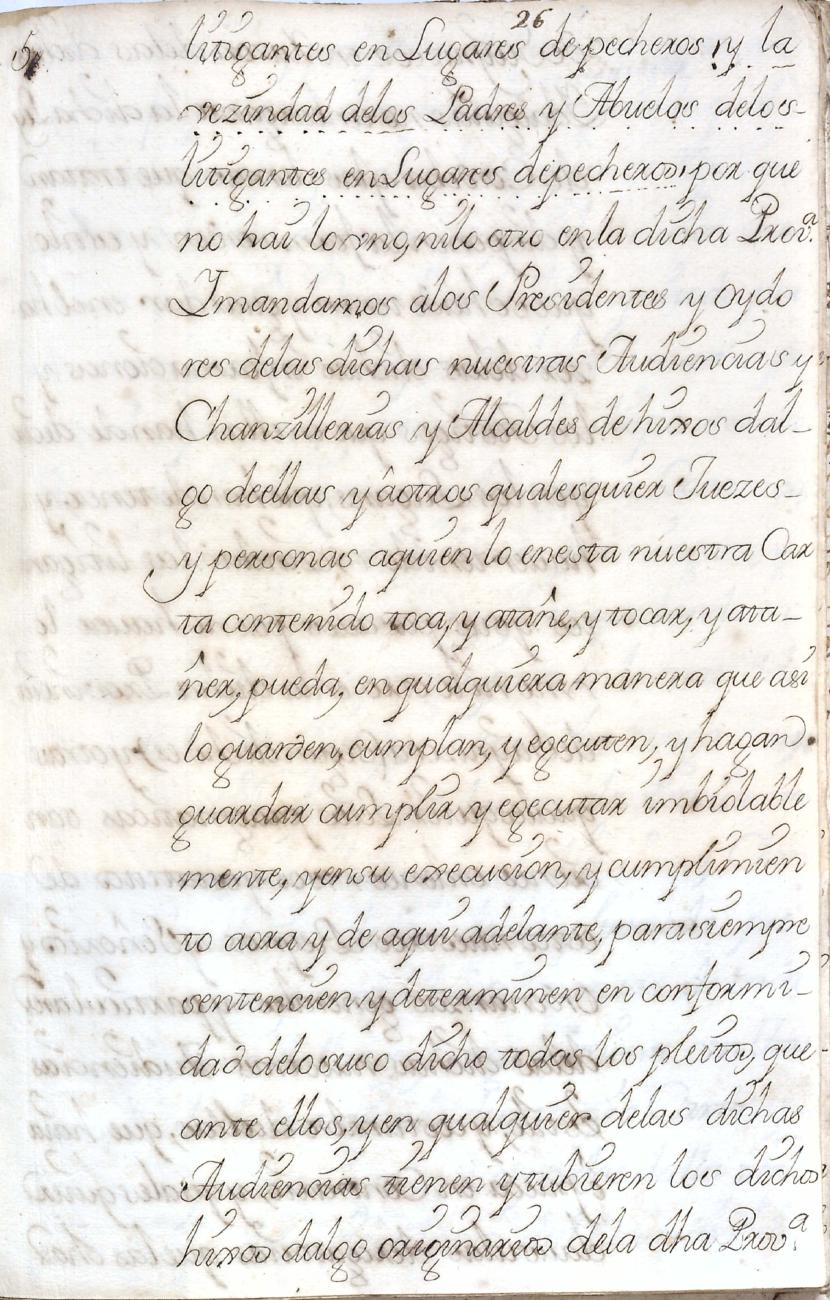 26
5
litigantes en Lugares de pecheros, y la
vezindad delos Padres y Abuelos delos-
litigantes en Lugares depecheros, por que
no hai lo vno, nilo otro en la dicha Prov.ª
Y mandamos alos Presidentes y oydo
res delas dichas nuestras Audiencias y
Chanzillerias y Alcaldes de hixos dal-
go deellas y â otros qualesquier Juezes-
y personas aquien lo enesta nuestra Car
ta contenido toca, y atañe, y tocar, y ata-
ñer, pueda, en qualquiera manera que asi
lo guarden, cumplan, y egecuten, y hagan
guardar cumplir y egecutar imbiolable
mente, yensu execucion, y cumplimien
to aora y de aqui adelante, para siempre
sentencien y determinen en conformi-
dad delo suso dicho todos los pleitos, que
ante ellos, yen qualquier delas dichas
Audiencias tienen y tubieren los dichos
hixos dalgo originarios dela dha Prov.ª